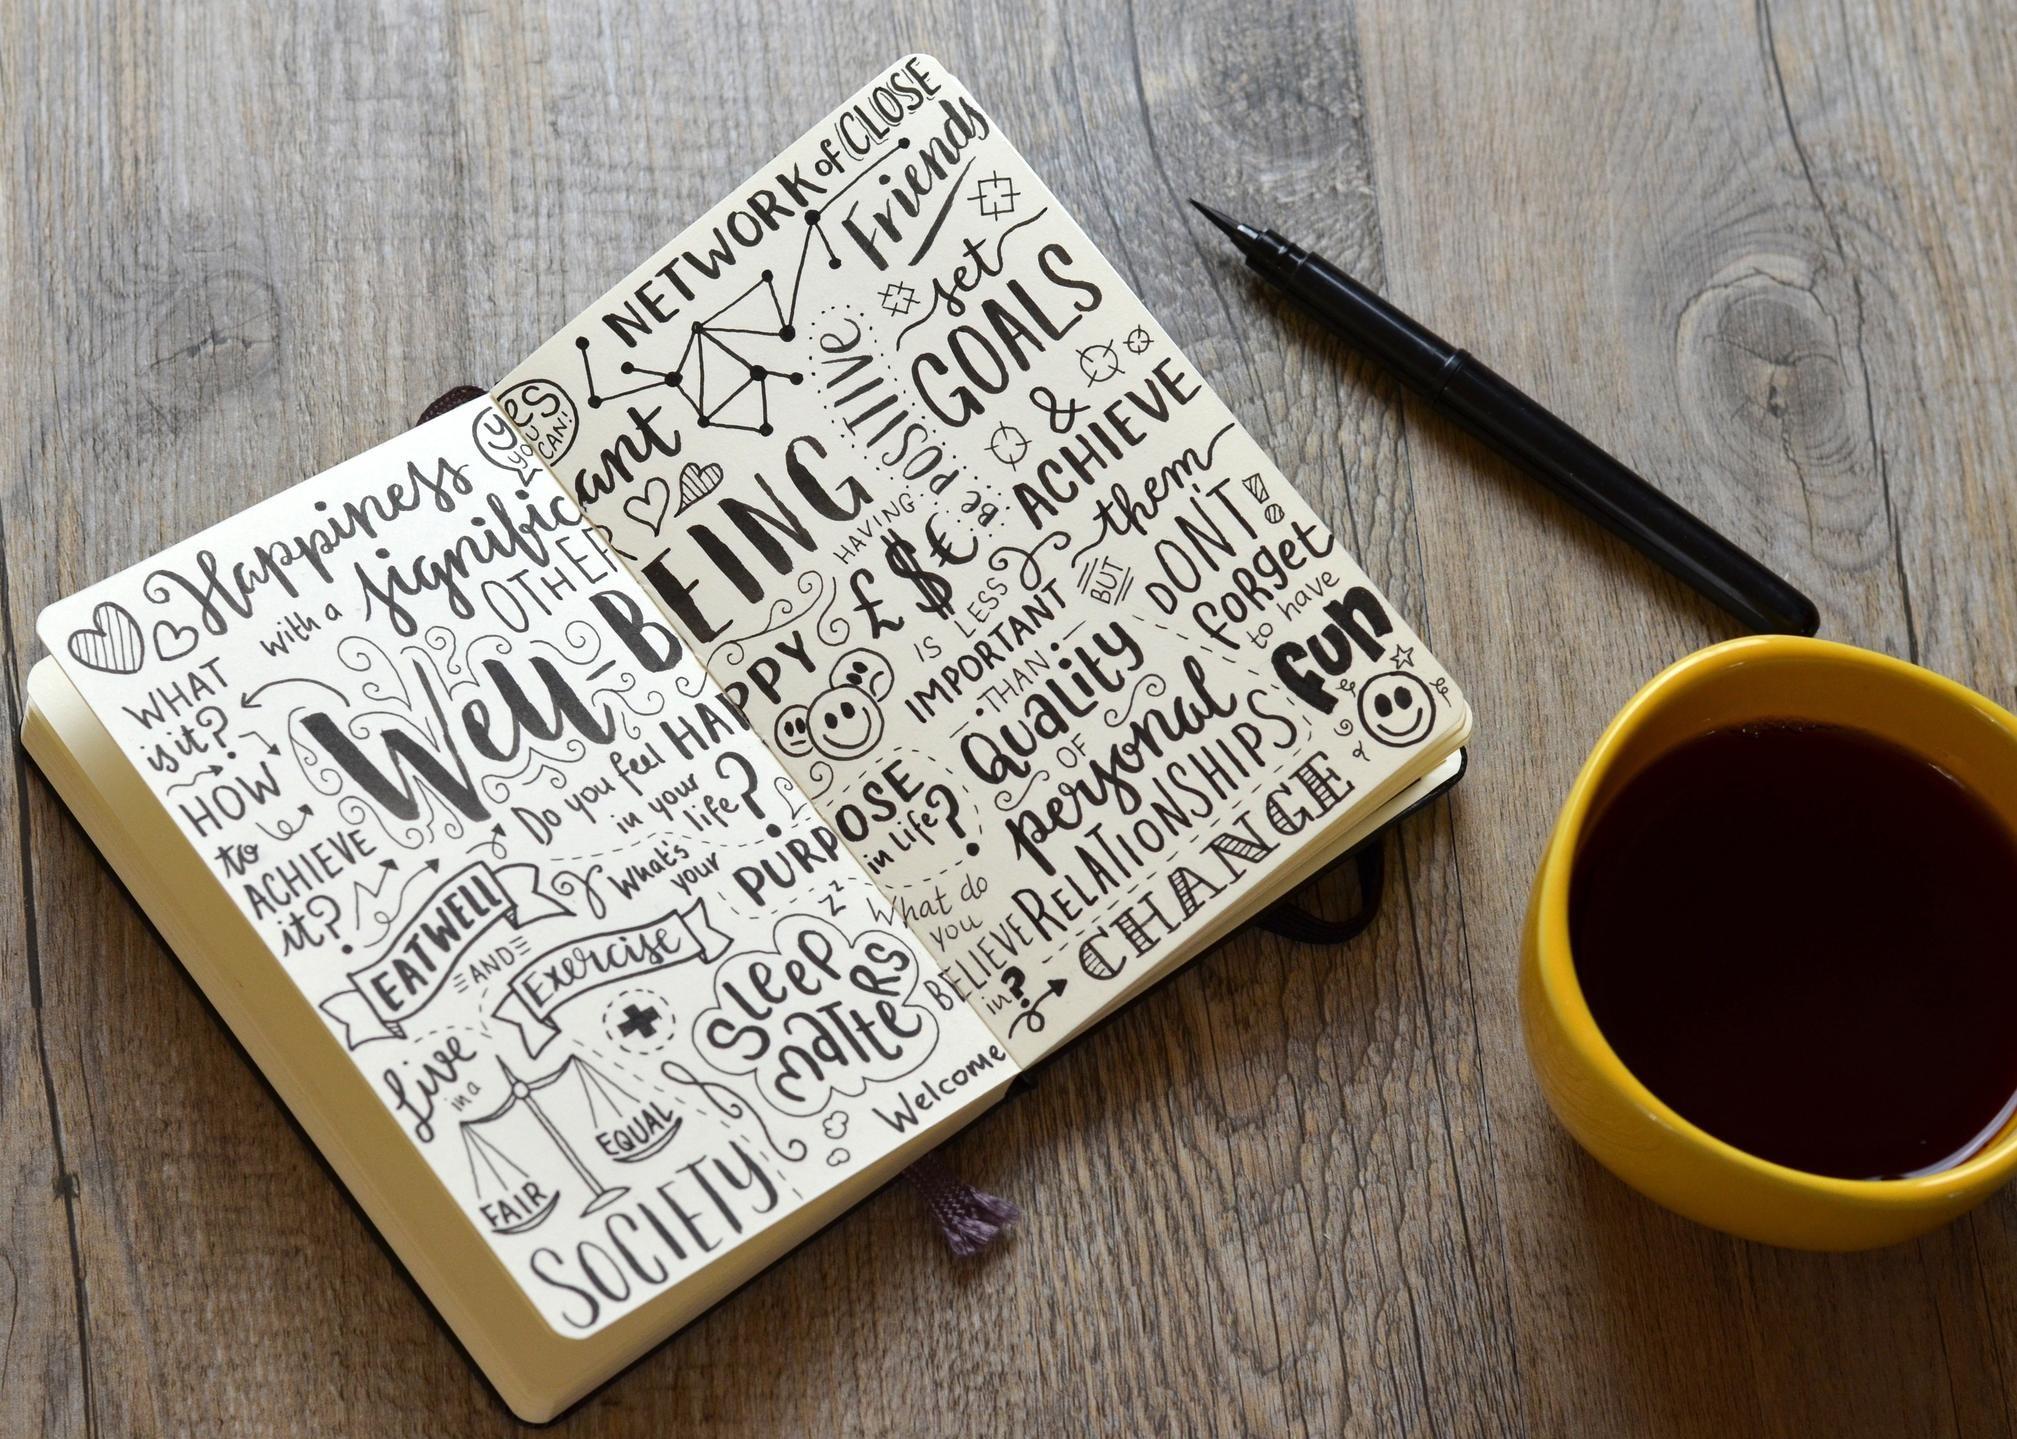 Happiness
with a significant
OTHER
yes
YOU
CAN!
WHAT
is it?
HOW
to
ACHIEVE
it?
Well-BEING
Do you feel HAPPY
in your
life?
What's
your PURPOSE
in life?
EAT WELL
AND
Exercise
SLEEP
MATTERS
z z
Live
in a
FAIR
EQUAL
SOCIETY
NETWORK of CLOSE
Friends
set
GOALS
&
ACHIEVE
them
BE
POSITIVE
HAVING
£ $ €
IS LESS
IMPORTANT
THAN
Quality
OF
personal
RELATIONSHIPS
BUT
DON'T!
forget
to have
fun
What do
you
BELIEVE
in?
Welcome
CHANGE